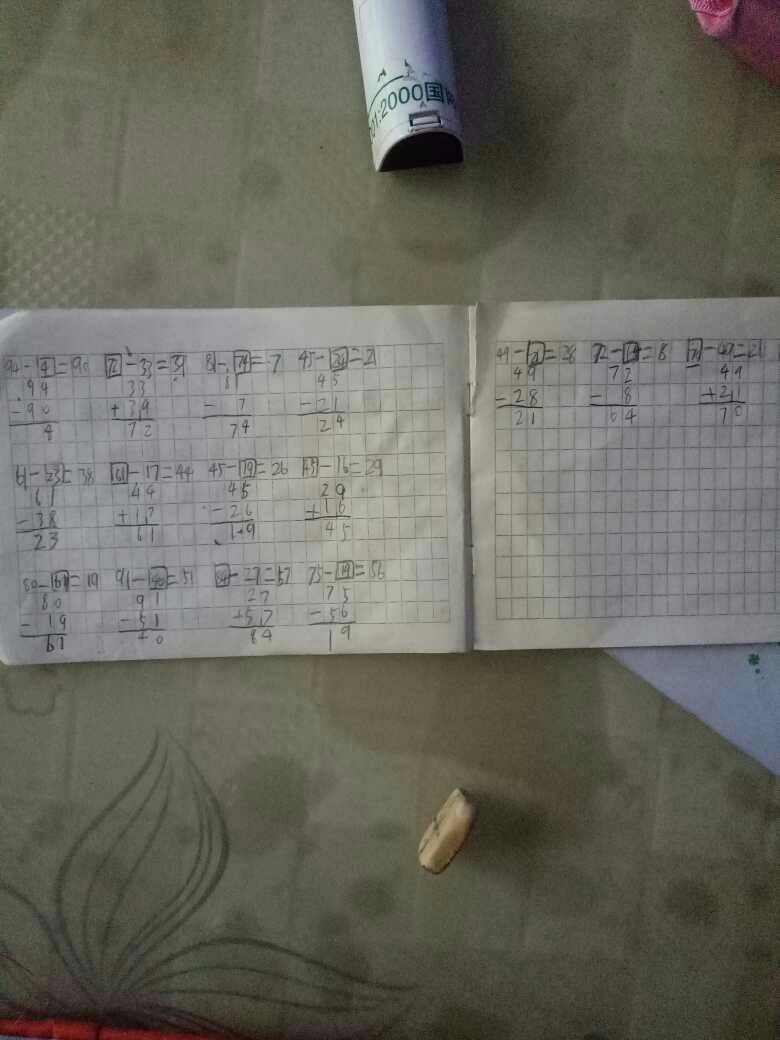 01:2000国
94-4=90 72-33=39 81-74=7 45-24=21
94 33 81 45
-90 +39 -7 -21
4 72 74 24
61-23=38 61-17=44 45-19=26 45-16=29
61 44 45 29
-38 +17 -26 +16
23 61 19 45
80-61=19 91-40=51 84-27=57 75-19=56
80 27 75
91
-19 -51 +57 -56
61 40 84 19
49-21=28 72-64=8 70-49=21
49 72 49
-28 -8 +21
21 64 70